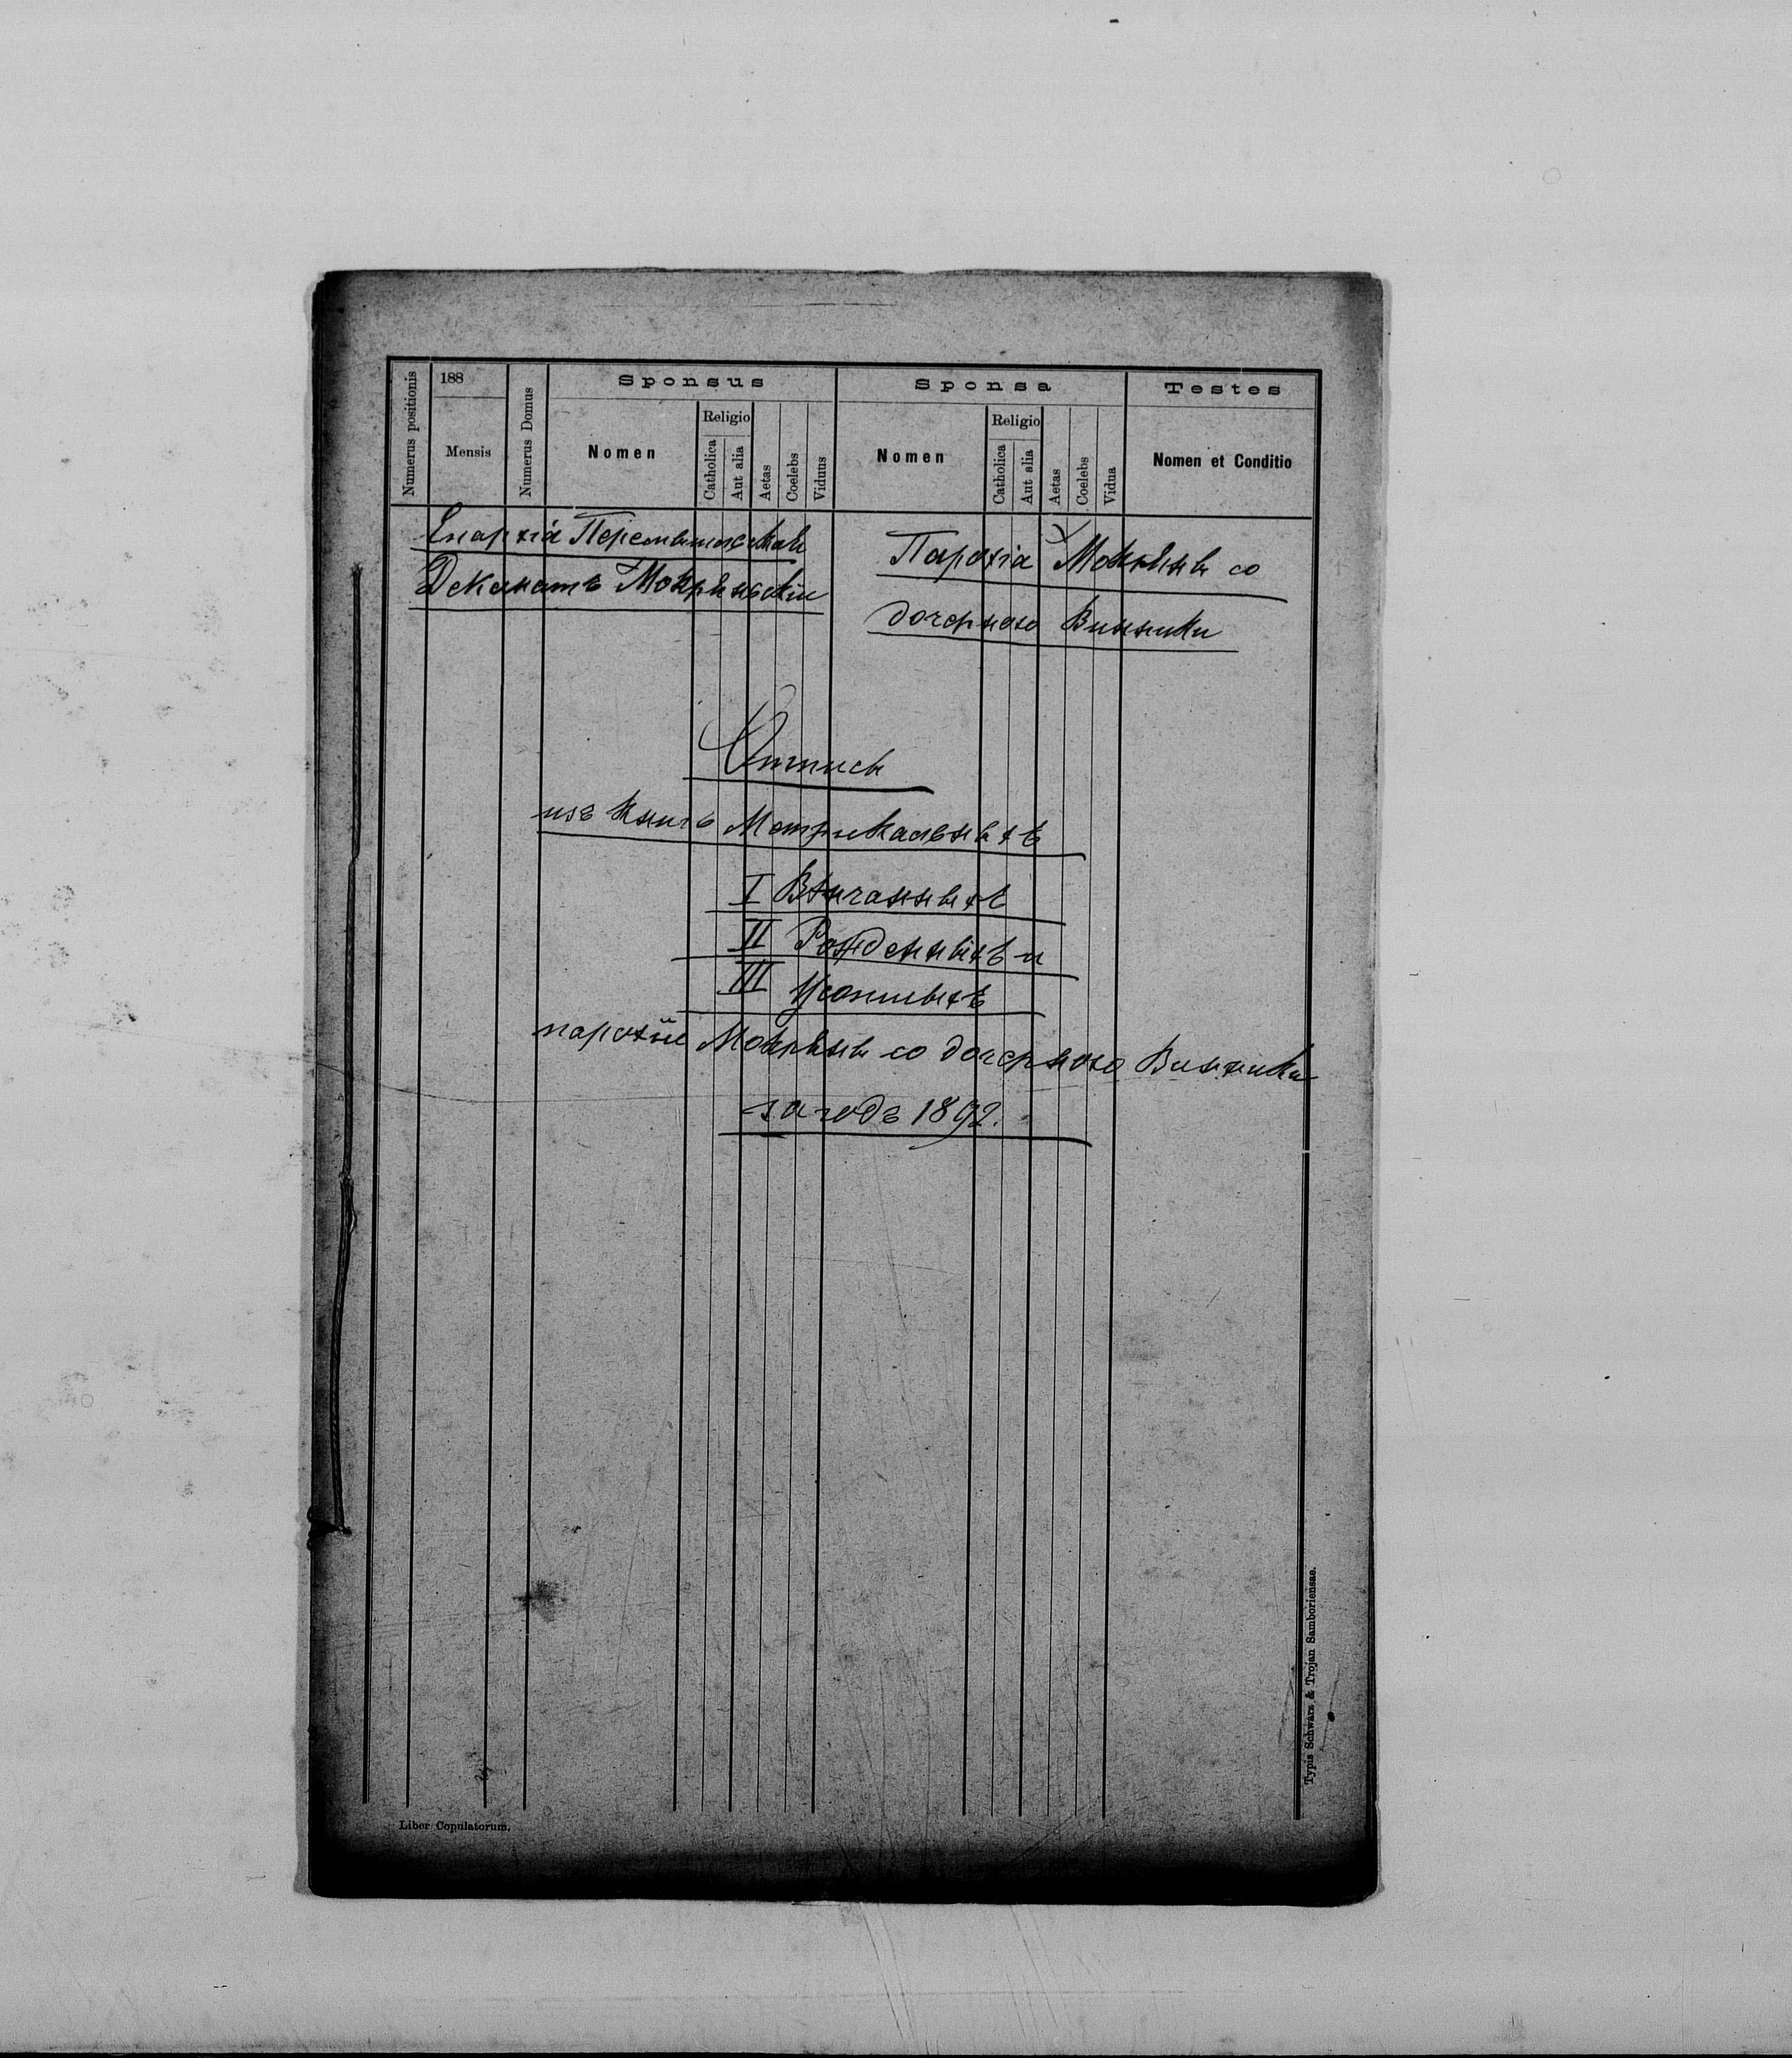 Numerus positionis
188
Mensis
Numerus Domus
Sponsus
Nomen
Religio
Catholica
Aut alia
Aetas
Coelebs
Viduus
Sponsa
Nomen
Religio
Catholica
Aut alia
Aetas
Coelebs
Vidua
Testes
Nomen et Conditio
Епархіа Перемышльскаѣ
Деканатъ Мокрянскій
Парохіа Мокряны со
дочерною Винники
Отпись
изъ Книгъ Метрикальныхъ
I Вѣнчанныхъ
II Рожденныхъ и
III Усопшыхъ
парохіи Мокряны со дочерною Винники
за годъ 1892.
Typis Schwarz & Trojan Samboriensae.
Liber Copulatorum.